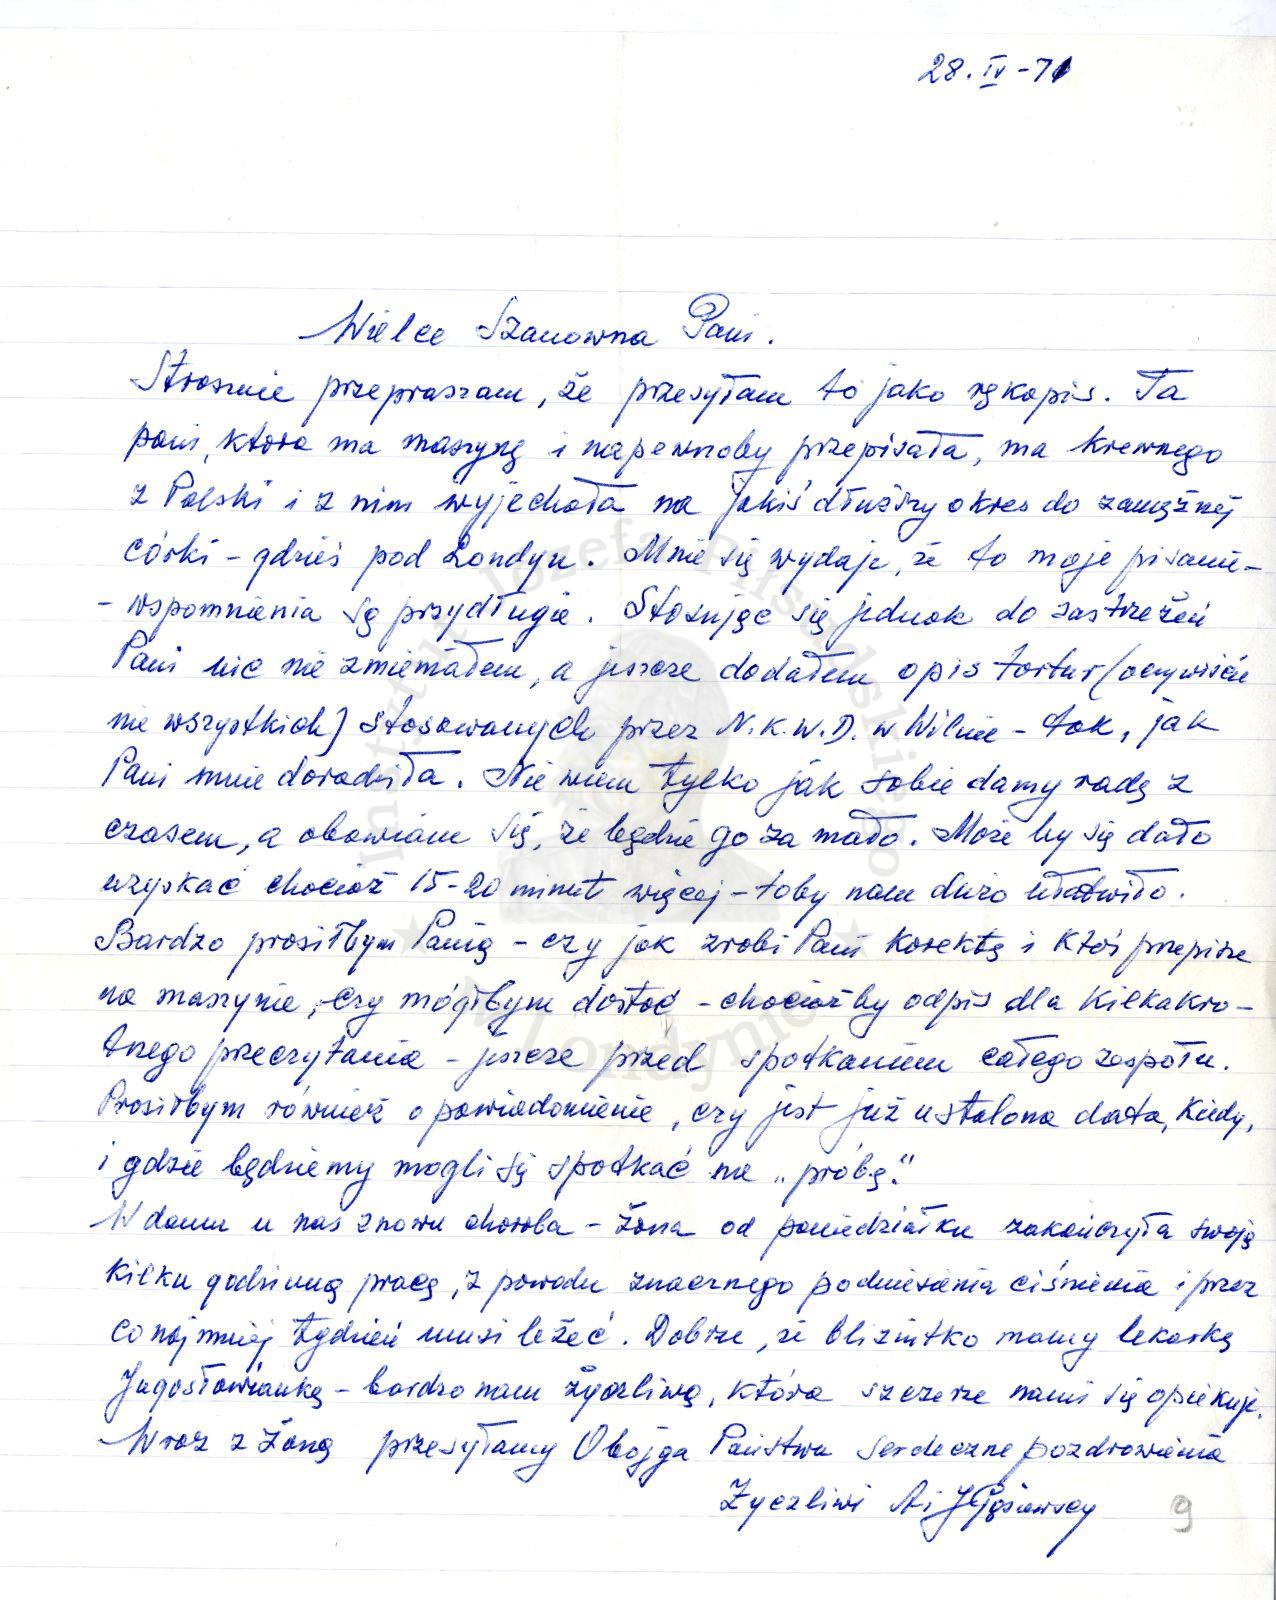 28. IV - 71
Wielce Szanowna Pani.
Strasznie przepraszam, że przesyłam to jako rękopis. Ta
pani, która ma maszynę i napewnoby przepisała, ma krewnego
z Polski i z nim wyjechała na jakiś dłuższy okres do zamężnej
córki - gdzieś pod Londyn. Mnie się wydaje, że to moje pisanie-
- wspomnienia są przydługie. Stosując się jednak do zastrzeżeń
Pani nic nie zmieniałem, a jeszcze dodałem opis tortur (oczywiście
nie wszystkich) stosowanych przez N.K.W.D. w Wilnie - tak, jak
Pani mnie doradziła. Nie wiem tylko jak sobie damy radę z
czasem, a obawiam się, że będzie go za mało. Może by się dało
uzyskać chociaż 15-20 minut więcej - toby nam dużo ułatwiło.
Bardzo prosiłbym Panią - czy jak zrobi Pani korektę i ktoś przepisze
na maszynie, czy mógłbym dostać - chociażby odpis dla kilkakro-
tnego przeczytania - jeszcze przed spotkaniem całego zespołu.
Prosiłbym również o powiadomienie, czy jest już ustalona data, kiedy,
i gdzie będziemy mogli się spotkać na „próbę."
W domu u nas znowu choroba - żona od poniedziałku zakończyła swoją
kilku godzinną pracę, z powodu znacznego podniesienia ciśnienia i przez
co najmniej tydzień musi leżeć. Dobrze, że bliziutko mamy lekarkę
Jugosłowiankę - bardzo nam życzliwą, która szczerze nami się opiekuje.
Wraz z Żoną przesyłamy Obojga Państwu serdeczne pozdrowienia
Życzliwi A i J
9
Instytut Józefa Piłsudskiego
w Londynie